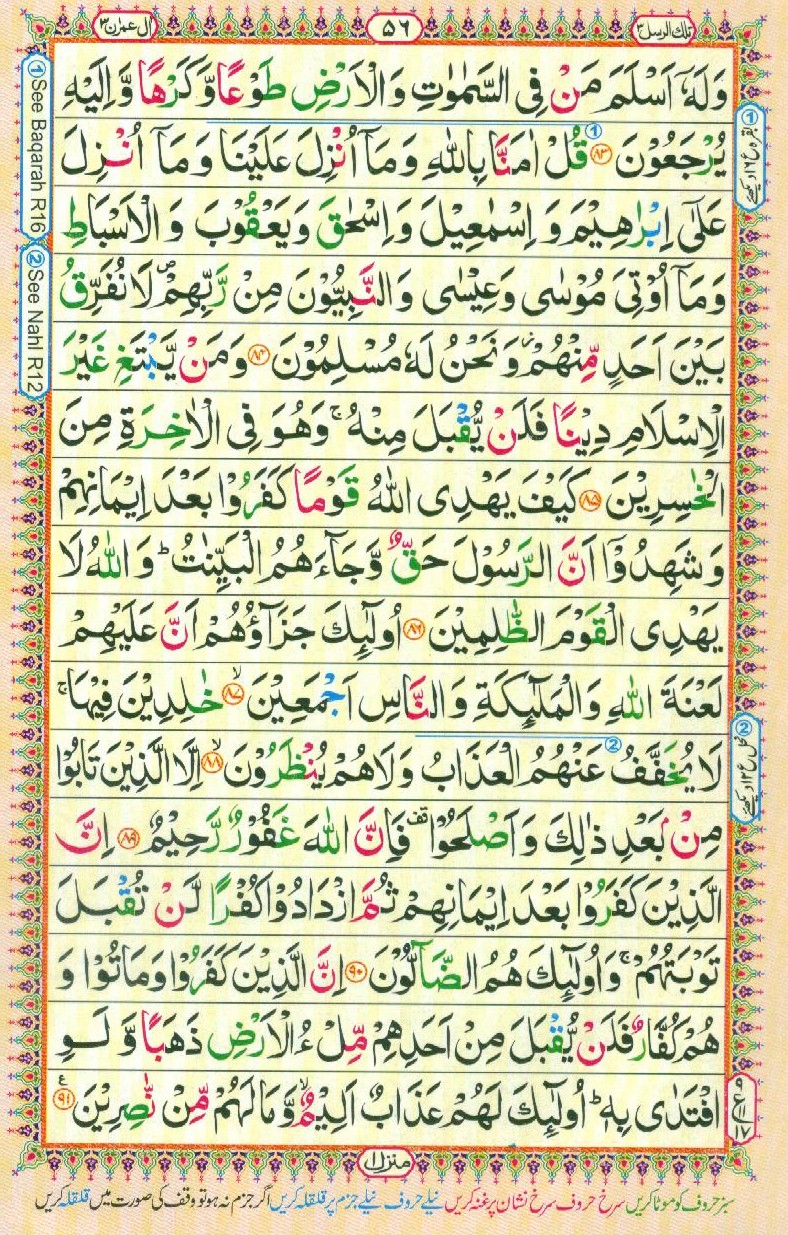 تلك الرسل ٣
٥٦
ال عمرٰن ٣
وَلَهٗۤ اَسْلَمَ مَنْ فِى السَّمٰوٰتِ وَالْاَرْضِ طَوْعًا وَّكَرْهًا وَّاِلَيْهِ
يُرْجَعُوْنَ ﴿٨٣﴾ قُلْ اٰمَنَّا بِاللّٰهِ وَمَاۤ اُنْزِلَ عَلَيْنَا وَمَاۤ اُنْزِلَ
عَلٰٓى اِبْرٰهِيْمَ وَ اِسْمٰعِيْلَ وَاِسْحٰقَ وَيَعْقُوْبَ وَ الْاَسْبَاطِ
وَمَاۤ اُوْتِىَ مُوْسٰى وَعِيْسٰى وَالنَّبِيُّوْنَ مِنْ رَّبِّهِمْ ۪ لَا نُفَرِّقُ
بَيْنَ اَحَدٍ مِّنْهُمْ ؗ وَنَحْنُ لَهٗ مُسْلِمُوْنَ ﴿٨٤﴾ وَمَنْ يَّبْتَغِ غَيْرَ
الْاِسْلَامِ دِيْنًا فَلَنْ يُّقْبَلَ مِنْهُ ۚ وَهُوَ فِى الْاٰخِرَةِ مِنَ
الْخٰسِرِيْنَ ﴿٨٥﴾ كَيْفَ يَهْدِى اللّٰهُ قَوْمًا كَفَرُوْا بَعْدَ اِيْمَانِهِمْ
وَ شَهِدُوْۤا اَنَّ الرَّسُوْلَ حَقٌّ وَّجَآءَهُمُ الْبَيِّنٰتُ ؕ وَ اللّٰهُ لَا
يَهْدِى الْقَوْمَ الظّٰلِمِيْنَ ﴿٨٦﴾ اُولٰٓئِكَ جَزَآؤُهُمْ اَنَّ عَلَيْهِمْ
لَعْنَةَ اللّٰهِ وَالْمَلٰٓئِكَةِ وَالنَّاسِ اَجْمَعِيْنَ ۙ﴿٨٧﴾ خٰلِدِيْنَ فِيْهَا ۚ
لَا يُخَفَّفُ عَنْهُمُ الْعَذَابُ وَلَا هُمْ يُنْظَرُوْنَ ۙ﴿٨٨﴾ اِلَّا الَّذِيْنَ تَابُوْا
مِنْۢ بَعْدِ ذٰلِكَ وَ اَصْلَحُوْا قف فَاِنَّ اللّٰهَ غَفُوْرٌ رَّحِيْمٌ ﴿٨٩﴾ اِنَّ
الَّذِيْنَ كَفَرُوْا بَعْدَ اِيْمَانِهِمْ ثُمَّ ازْدَادُوْا كُفْرًا لَّنْ تُقْبَلَ
تَوْبَتُهُمْ ۚ وَ اُولٰٓئِكَ هُمُ الضَّآلُّوْنَ ﴿٩٠﴾ اِنَّ الَّذِيْنَ كَفَرُوْا وَمَاتُوْا وَ
هُمْ كُفَّارٌ فَلَنْ يُّقْبَلَ مِنْ اَحَدِهِمْ مِّلْءُ الْاَرْضِ ذَهَبًا وَّ لَوِ
افْتَدٰى بِهٖ ؕ اُولٰٓئِكَ لَهُمْ عَذَابٌ اَلِيْمٌ ۙ وَّمَا لَهُمْ مِّنْ نّٰصِرِيْنَ ﴿٩١﴾ ع
① See Baqarah R16
② See Nahl R12
① بقرہ ع ١٦ دیکھئے
② نحل ع ١٢ دیکھئے
٩
ع ١١
١٧
منزل ١
سبز حروف کو موٹا کریں سرخ حروف سرخ نشان پر غنہ کریں نیلے حروف نیلے جزم پر قلقلہ کریں اگر جزم نہ ہو تو وقف کی صورت میں قلقلہ کریں